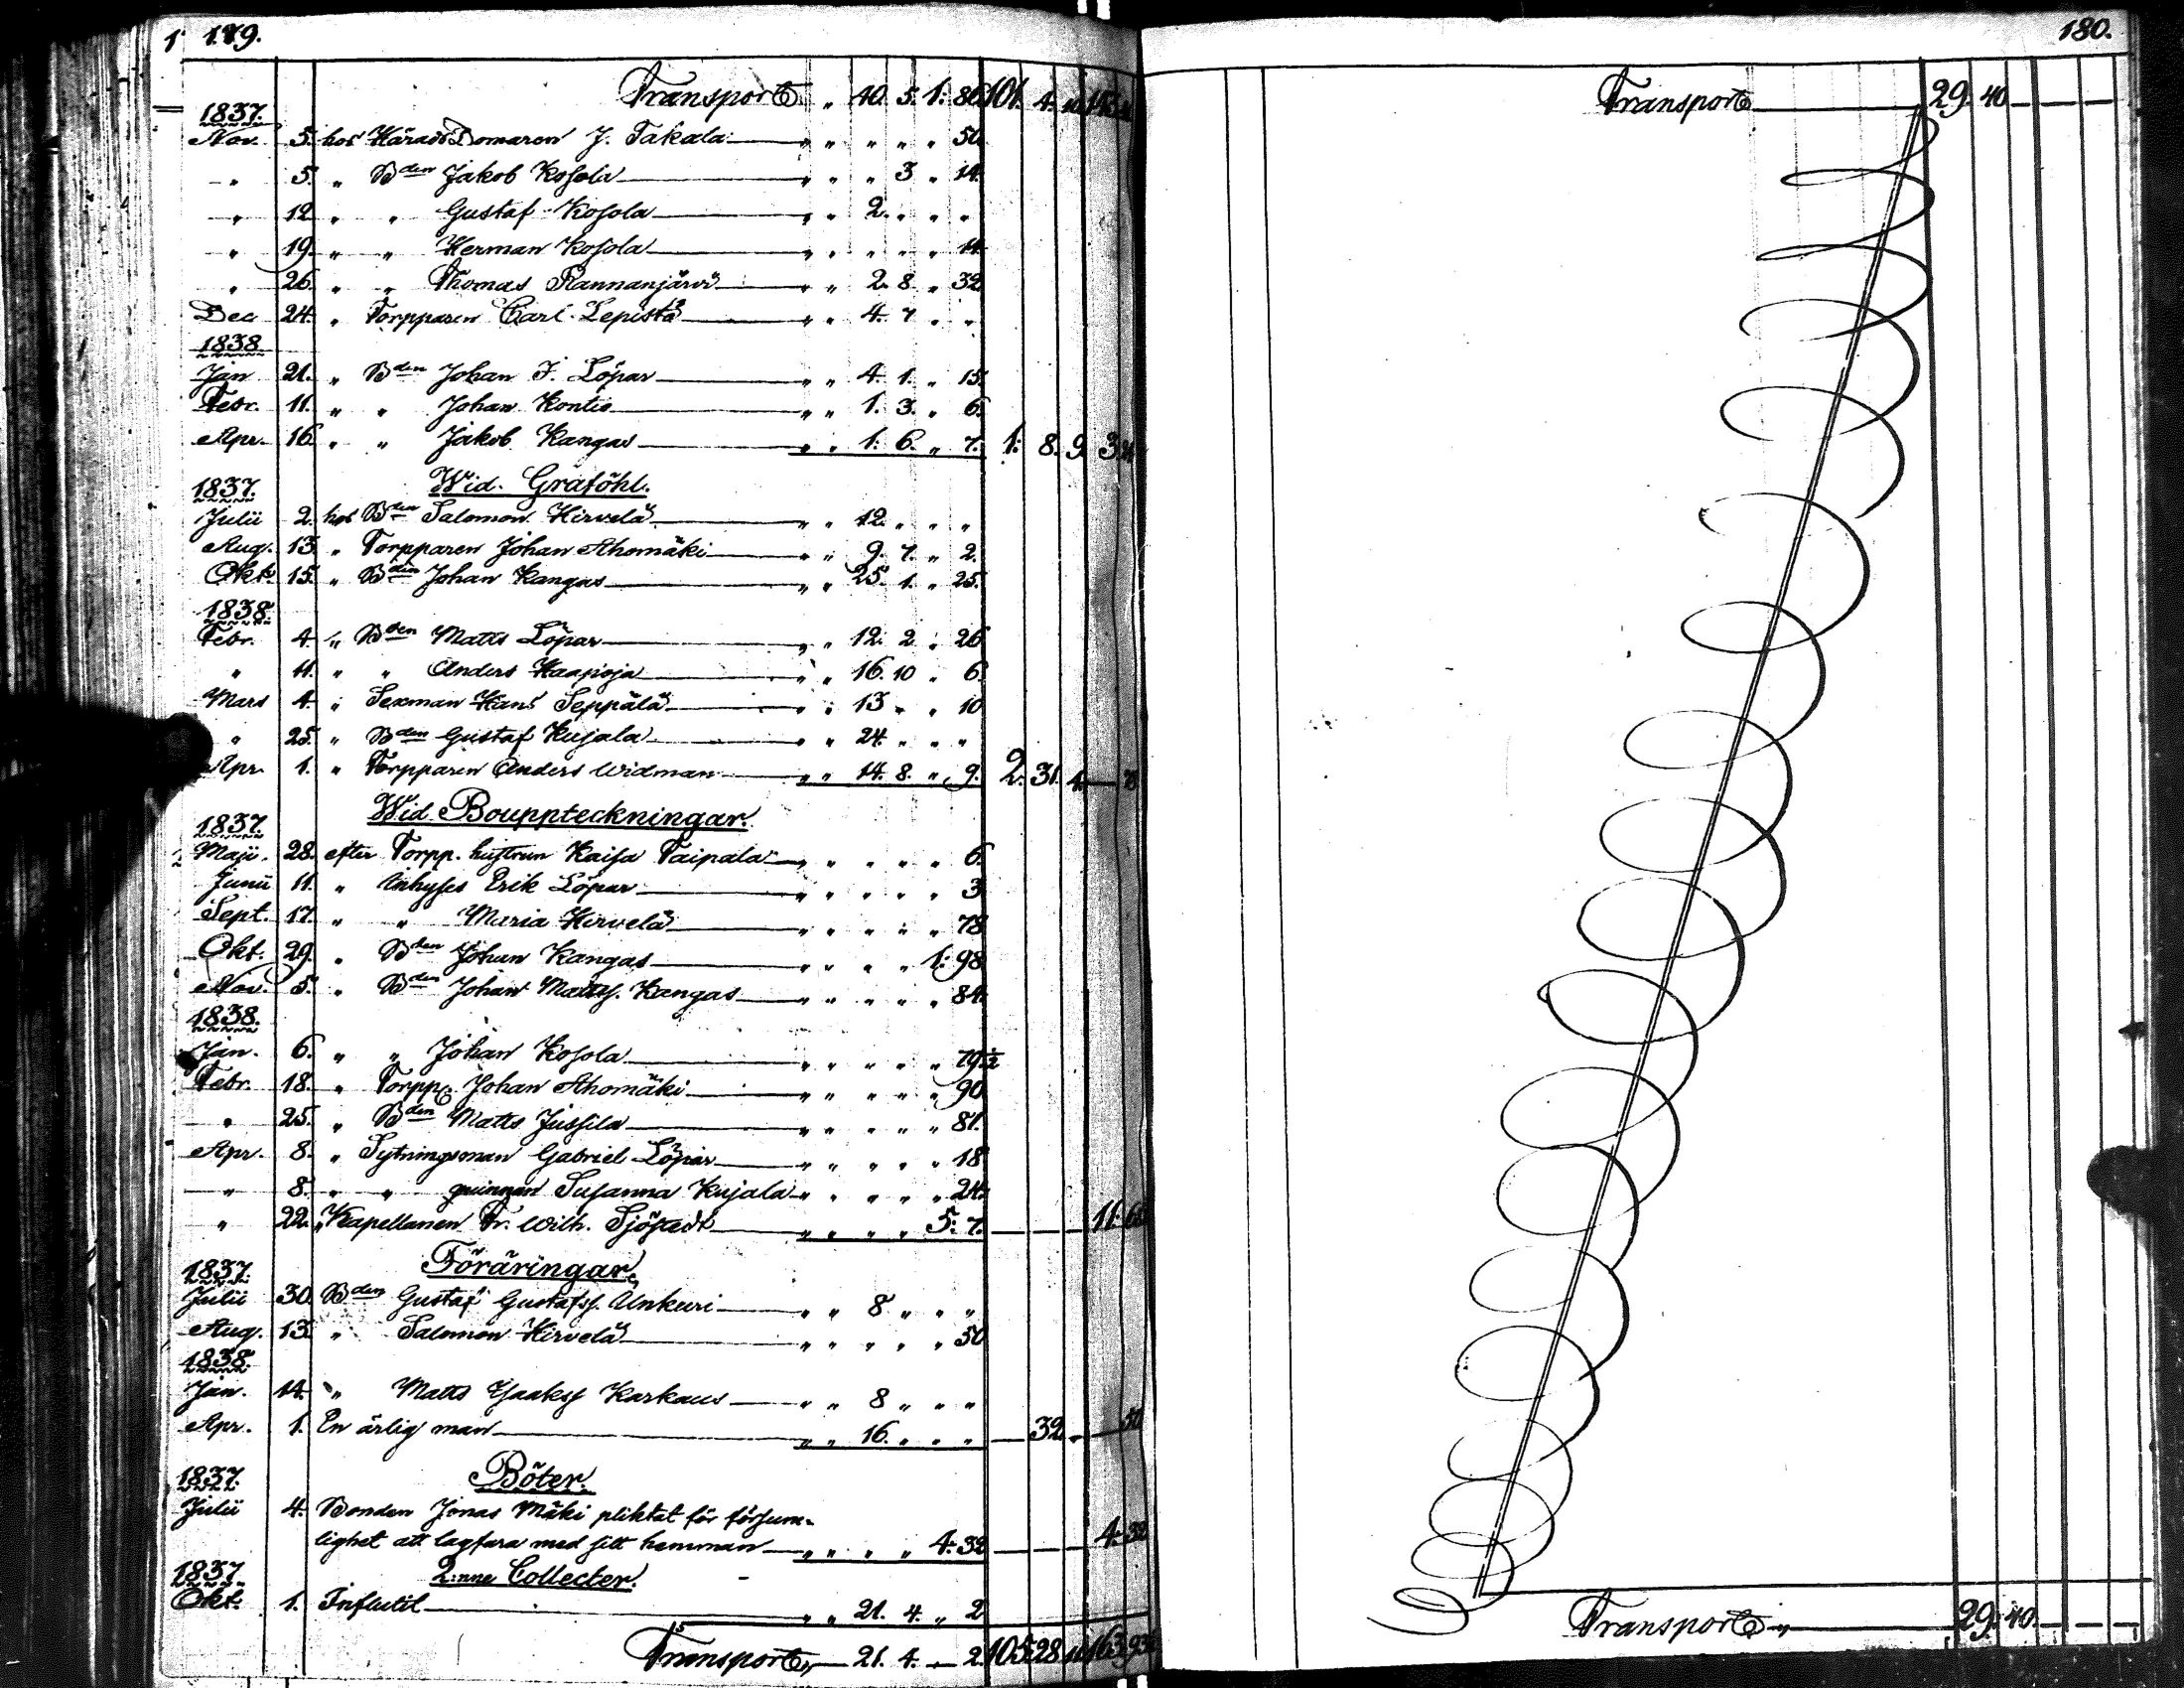 179.
Transport " 40. 5. 1: 80 101. 4. 10
1837.
Nov. 5. hos HäradsDomaren J. Takala " " " " " 50.
" 5. " Bden Jakob Kosola " " " 3 " 14.
" 12 " " Gustaf Kosola " " 2. " " "
" 19. " " Herman Kosola " " " " " 14
" 26. " " Thomas Rannanjärvi " " 2. 8. " 32
Dec 24. " Torpparen Carl Lepistä " " 4. 7 " "
1838
Jan 21. " Bden Johan J. Löpar " " 4. 1. " 15.
Febr. 11. " " Johan Kontio " " 1. 3. " 6.
Apr. 16. " " Jakob Kangas " " 1: 6. " 7. 1: 8. 9.
Wid Graföhl.
1837.
Julii 2. hos Bden Salomon Hirvelä " " 12. " " "
Aug. 13. " Torpparen Johan Ahomäki " " 9. 7. " 2.
Okt. 15. " Bden Johan Kangas " " 25. 1. " 25.
1838.
Febr. 4. " Bden Matts Löpar " " 12. 2. " 26
" 11. " " Anders Haapoja " " 16. 10 " 6.
Mars 4. " Sexman Hans Seppälä " " 13 " " 10
" 25. " Bden Gustaf Kujala " " 24. " " "
Apr. 1. " Torpparen Anders Widman " " 14. 8. " 9. 2. 31. 4.
Wid Bouppteckningar.
1837.
Maji. 28. efter Torpp. hustrun Kaisa Taipala " " " " " 6.
Junii 11. " Inhyses Erik Löpar " " " " " 3
Sept. 17. " " Maria Hirvelä " " " " " 78
Okt. 29. " Bden Johan Kangas " " " " 1: 98
Nov. 5. " Bden Johan Mattss. Kangas " " " " " 84.
1838.
Jan. 6. " " Johan Kosola " " " " " 79 1/2
Febr. 18. " Torpp. Johan Ahomäki " " " " " 90
" 25. " Bden Matts Jussila " " " " " 81.
Apr. 8. " Sytningsman Gabriel Löpar " " " " " 18
" 8. " " quinnan Susanna Kujala " " " " " 24.
" 22. " Kapellanen Fr. Wilh. Sjöstedt " " " " 5: 7. 11:
Föräringar.
1837.
Julii 30. Bden Gustaf Gustafss. Unkuri " " 8 " " "
Aug. 13. " Salomon Hirvelä " " " " " 50
1838.
Jan. 14. " Matts Karkaus " " 8 " " "
Apr. 1. En ärlig man " " 16. " " " 32. 50
Böter.
1837.
Julii 4. Bonden Jonas Mäki pliktat för försum-
lighet att lagfara med sitt hemman " " " " 4: 32 4: 32
2:nne Collecter.
1837.
Okt. 1. Influtit " " 21. 4. " 2
Transport 21. 4. " 2. 105: 28
180.
Transport 29. 40
Transport 29. 40.